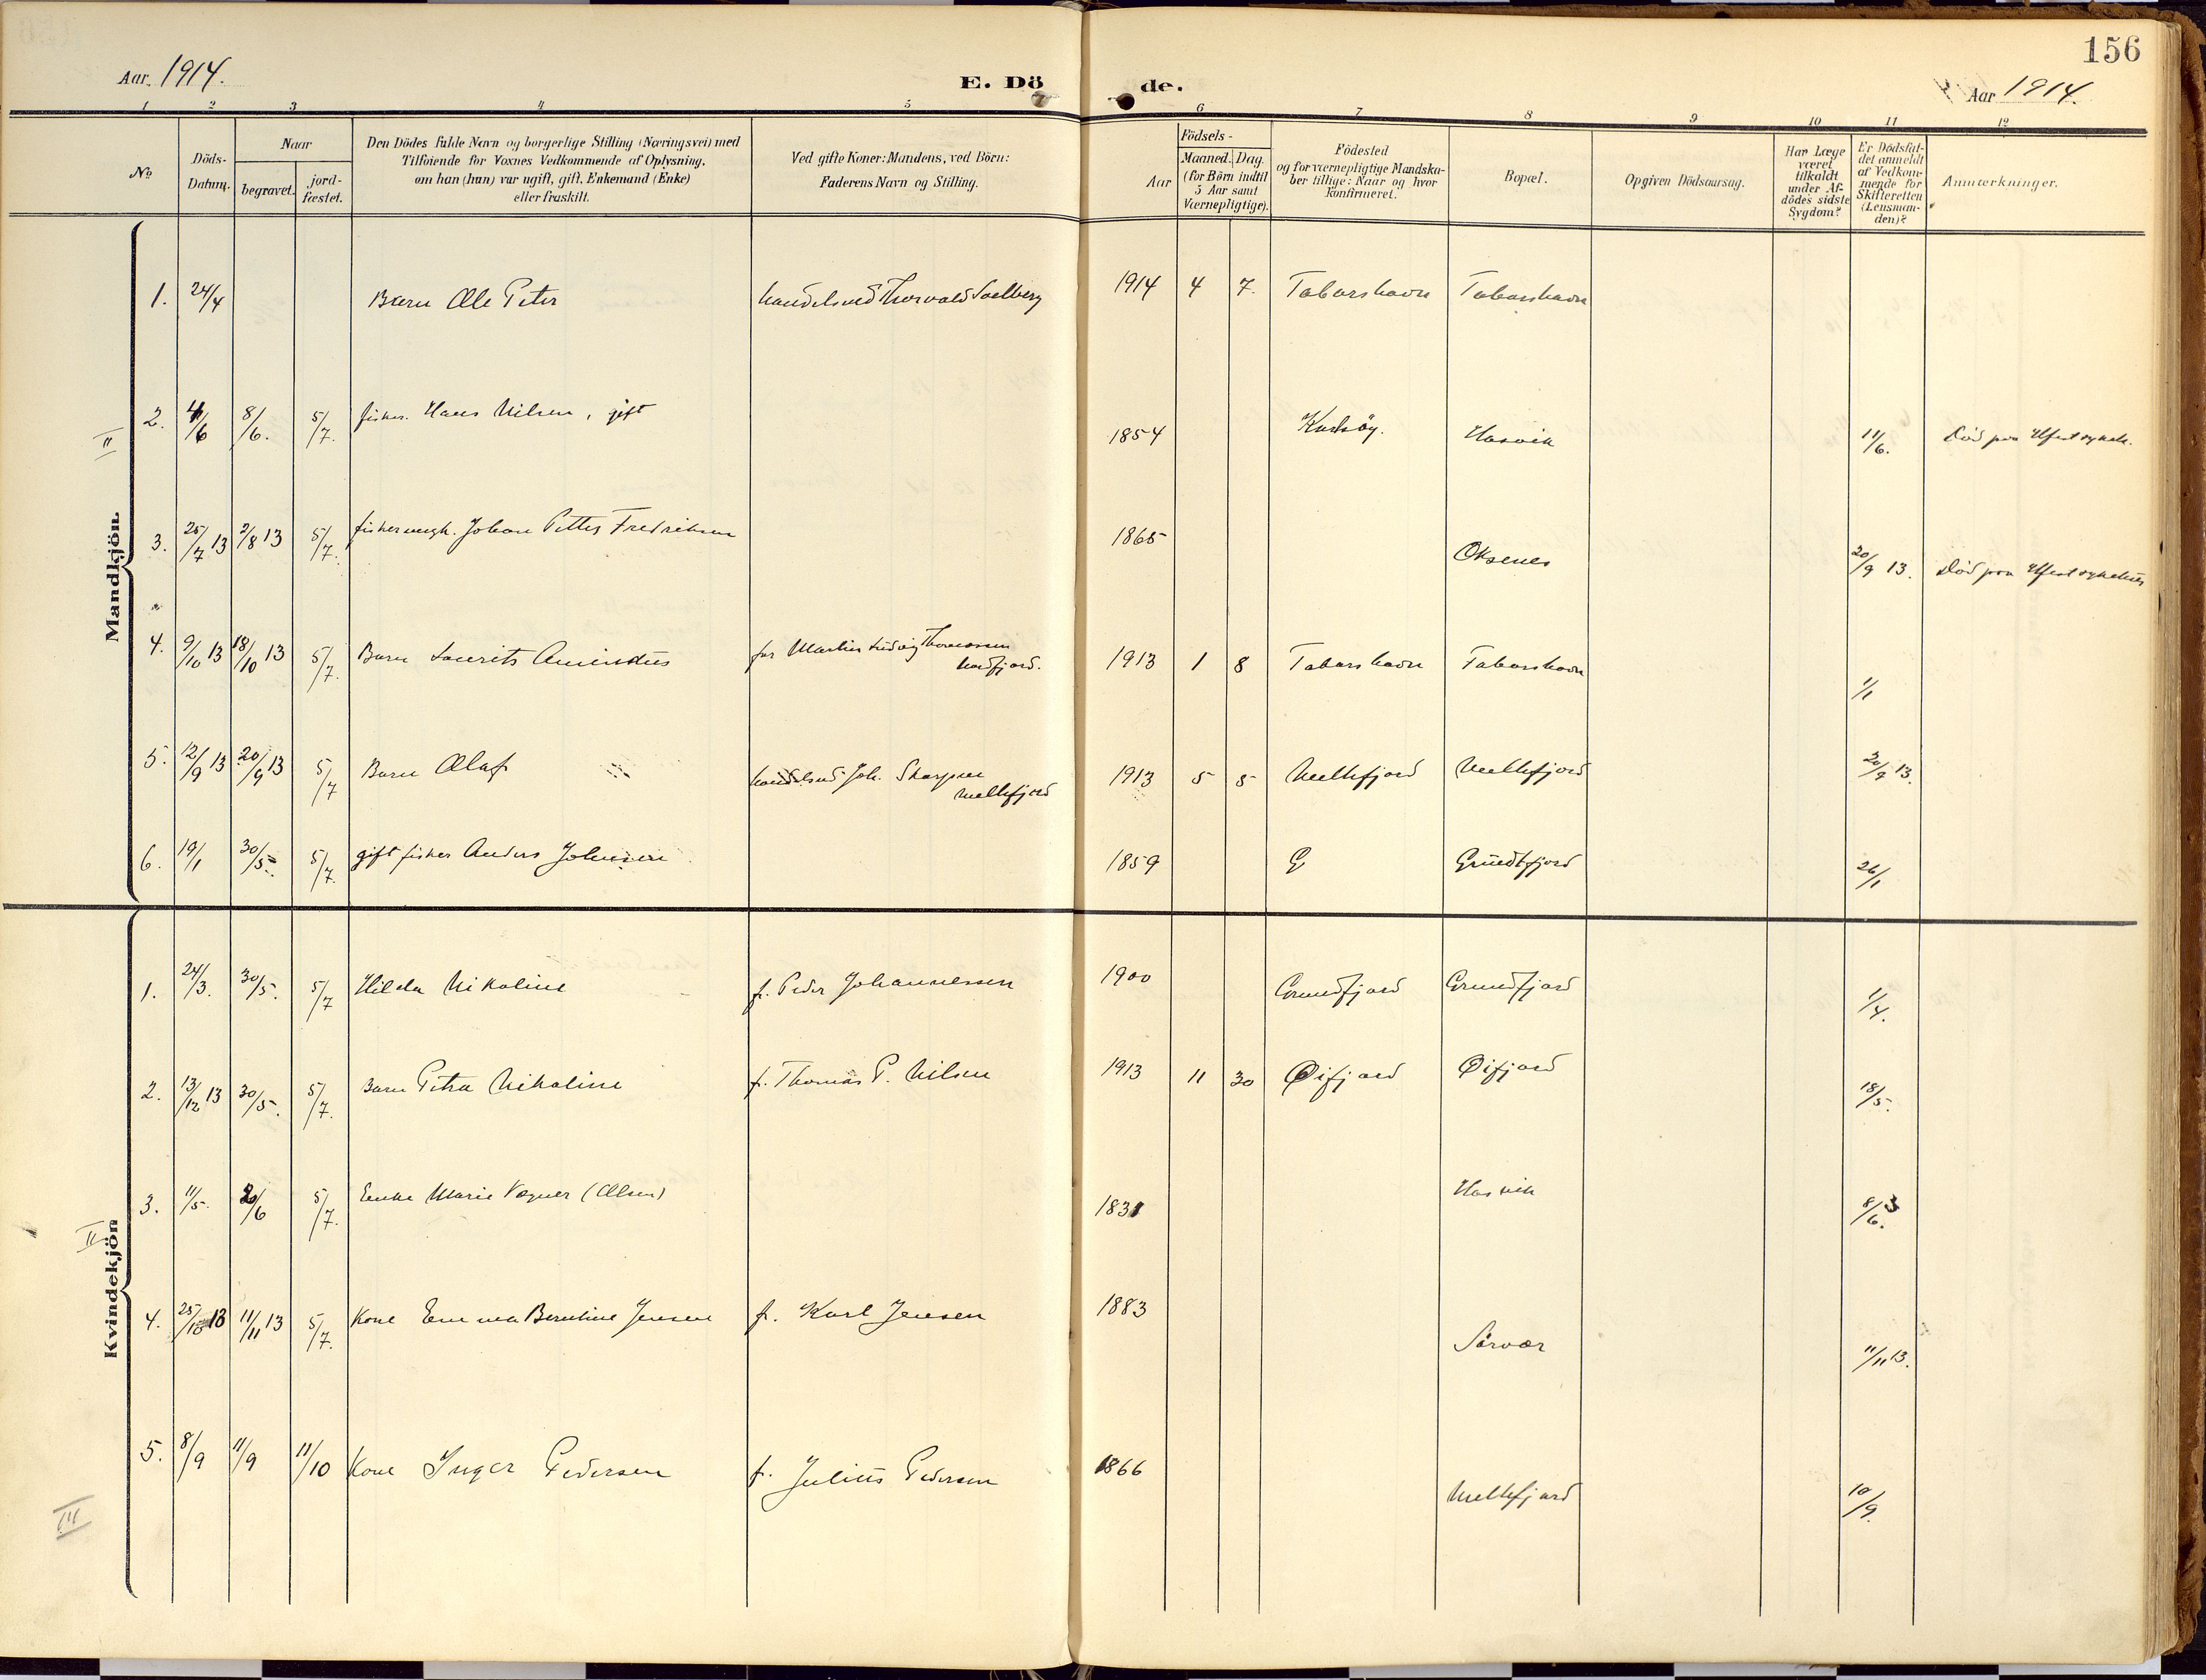 156
Aar 1914.
E. Dö de.
Aar 1914.
1 2 3 4 5 6 7 8 9 10 11 12
No
Döds-Datum.
Naar
begravet.
jord-fæstet.
Den Dödes fulde Navn og borgerlige Stilling (Næringsvei) med
Tilföiende for Voxnes Vedkommende af Oplysning,
om han (hun) var ugift, gift, Enkemand (Enke)
eller fraskilt.
Ved gifte Koner: Mandens, ved Börn:
Faderens Navn og Stilling.
Aar
Födsels-
Maaned. Dag.
(for Börn indtil
5 Aar samt
Værnepligtige).
Födested
og for værnepligtige Mandska-
ber tillige: Naar og hvor
konfirmeret.
Bopæl.
Opgiven Dödsaarsag.
Har Læge
været
tilkaldt
under Af-
dödes sidste
Sygdom?
Er Dödsfal-
det anmeldt
af Vedkom-
mende for
Skifteretten
(Lensman-
den)?
Anmærkninger.
Mandkjön.
II
1. 24/4 Barn Ole Peter handelsmd Thorvald Solberg 1914 4 7. Tabarshavn Tabarshavn
2. 4/6 8/6. 5/7. fisker. Hans Nilsen, gift 1854 Hasvik 11/6. Död paa
3. 25/7 13 2/8 13 5/7. fisker ungk. Johan Petter Fredriksen 1865 Oksenes 20/9 13. Död paa
4. 9/10 13 18/10 13 5/7. Barn Laurits Amindus far Martin Ludvig Thomassen
1913 1 8 Tabarshavn Tabarshavn 1/1
5. 12/9 13 20/9 13 5/7 Barn Olaf handelsmd Joh.
Mellefjord
1913 5 5 Mellefjord Mellefjord 20/9 13.
6. 19/1 30/5. 5/7. gift fisker Anders Johnsen 1859 G Grundfjord 26/1
Kvindekjön
II
1. 24/3. 30/5. 5/7 Hilda Nikoline f. Peder Johannessen 1900 Grundfjord Grundfjord 1/4.
2. 13/12 13 30/5. 5/7. Barn Petra Nikoline f. Thomas P. Nilsen 1913 11 30 Öifjord Öifjord 18/5.
3. 11/5. 20/6 5/7. Enke Marie Vagner (Olsen) 1831 Hasvik 8/6.
4. 25/10 13 11/11 13 5/7. Kone Emma Berntine Jensen f. Karl Jensen 1883 Sörvær 11/11 13.
5. 8/9 11/9 11/10 Kone Inger Pedersen f. Julius Pedersen 1866 Mellefjord 10/9.
III